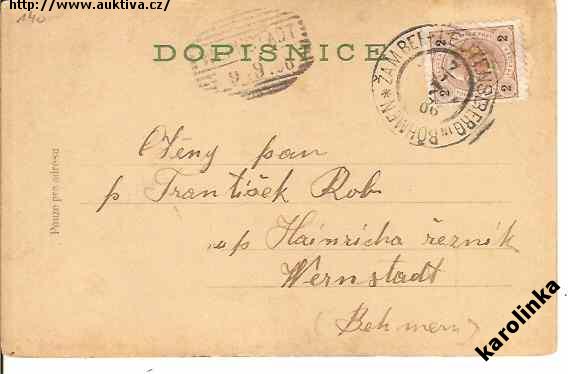 http://www.auktiva.cz/
140
DOPISNICE
ŽAMBERK SENFTENBERG in BÖHMEN
2 2
2 2
Pouze pro adresu
Ctěný pan
p František Rob
u p Hainricha řezník
Wernstadt
(Behmen)
karolinka